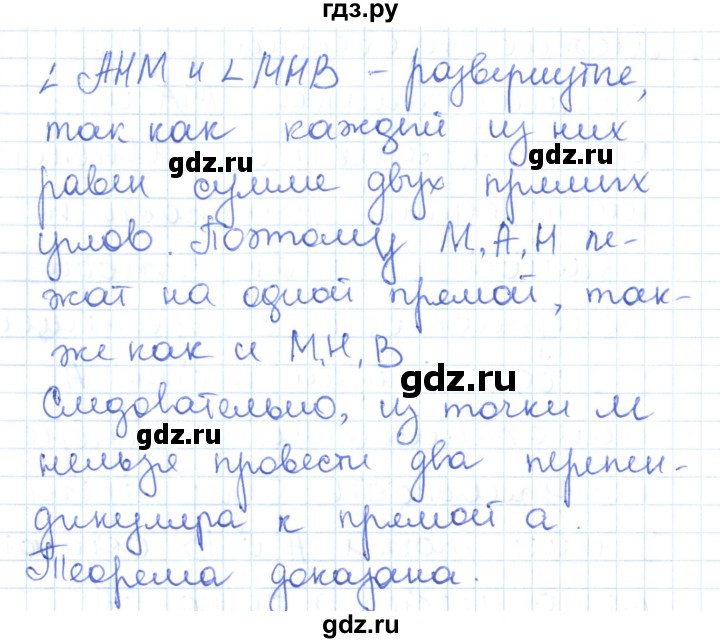 гдз.ру
∠ АНМ и ∠ МНВ – развернутые,
так как каждый из них
gdz.ru gdz.ru
равен сумме двух прямых
углов. Поэтому М, А, Н ле-
жат на одной прямой, так-
же как и М, Н, В
gdz.ru
Следовательно, из точки М
gdz.ru
нельзя провести два перпен-
дикуляра к прямой а.
gdz.ru
Теорема доказана.